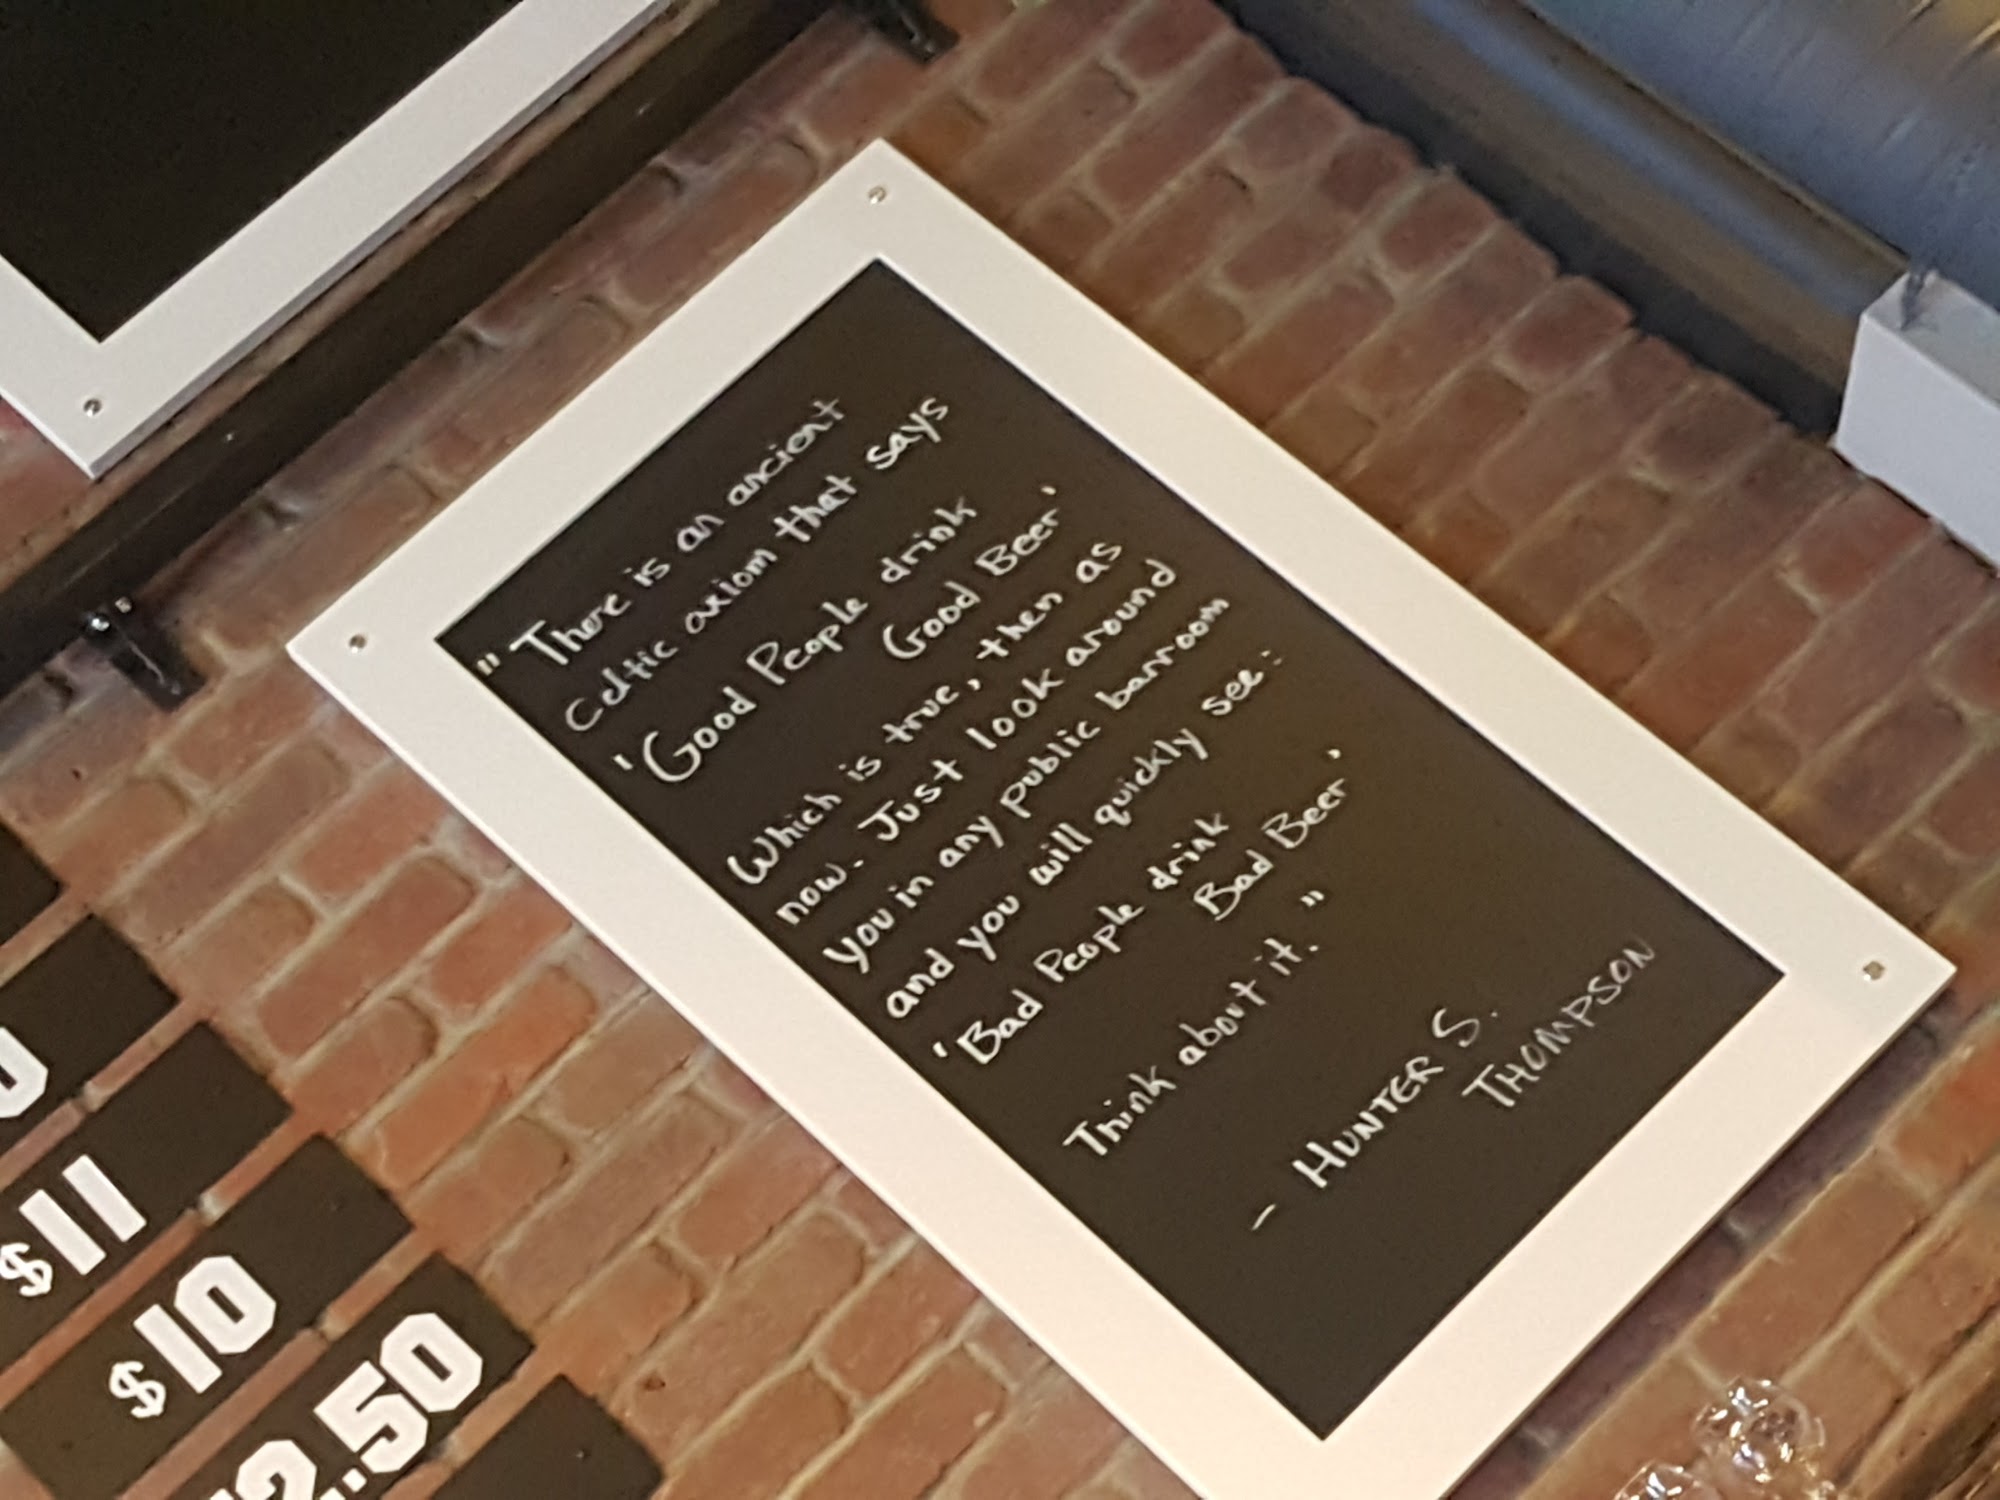 "There is an ancient
Celtic axiom that says
'Good People drink
Good Beer'
Which is true, then as
now. Just look around
you in any public barroom
and you will quickly see:
'Bad People drink
Bad Beer'
Think about it."
- HUNTER S.
THOMPSON
$11
$10
2.50